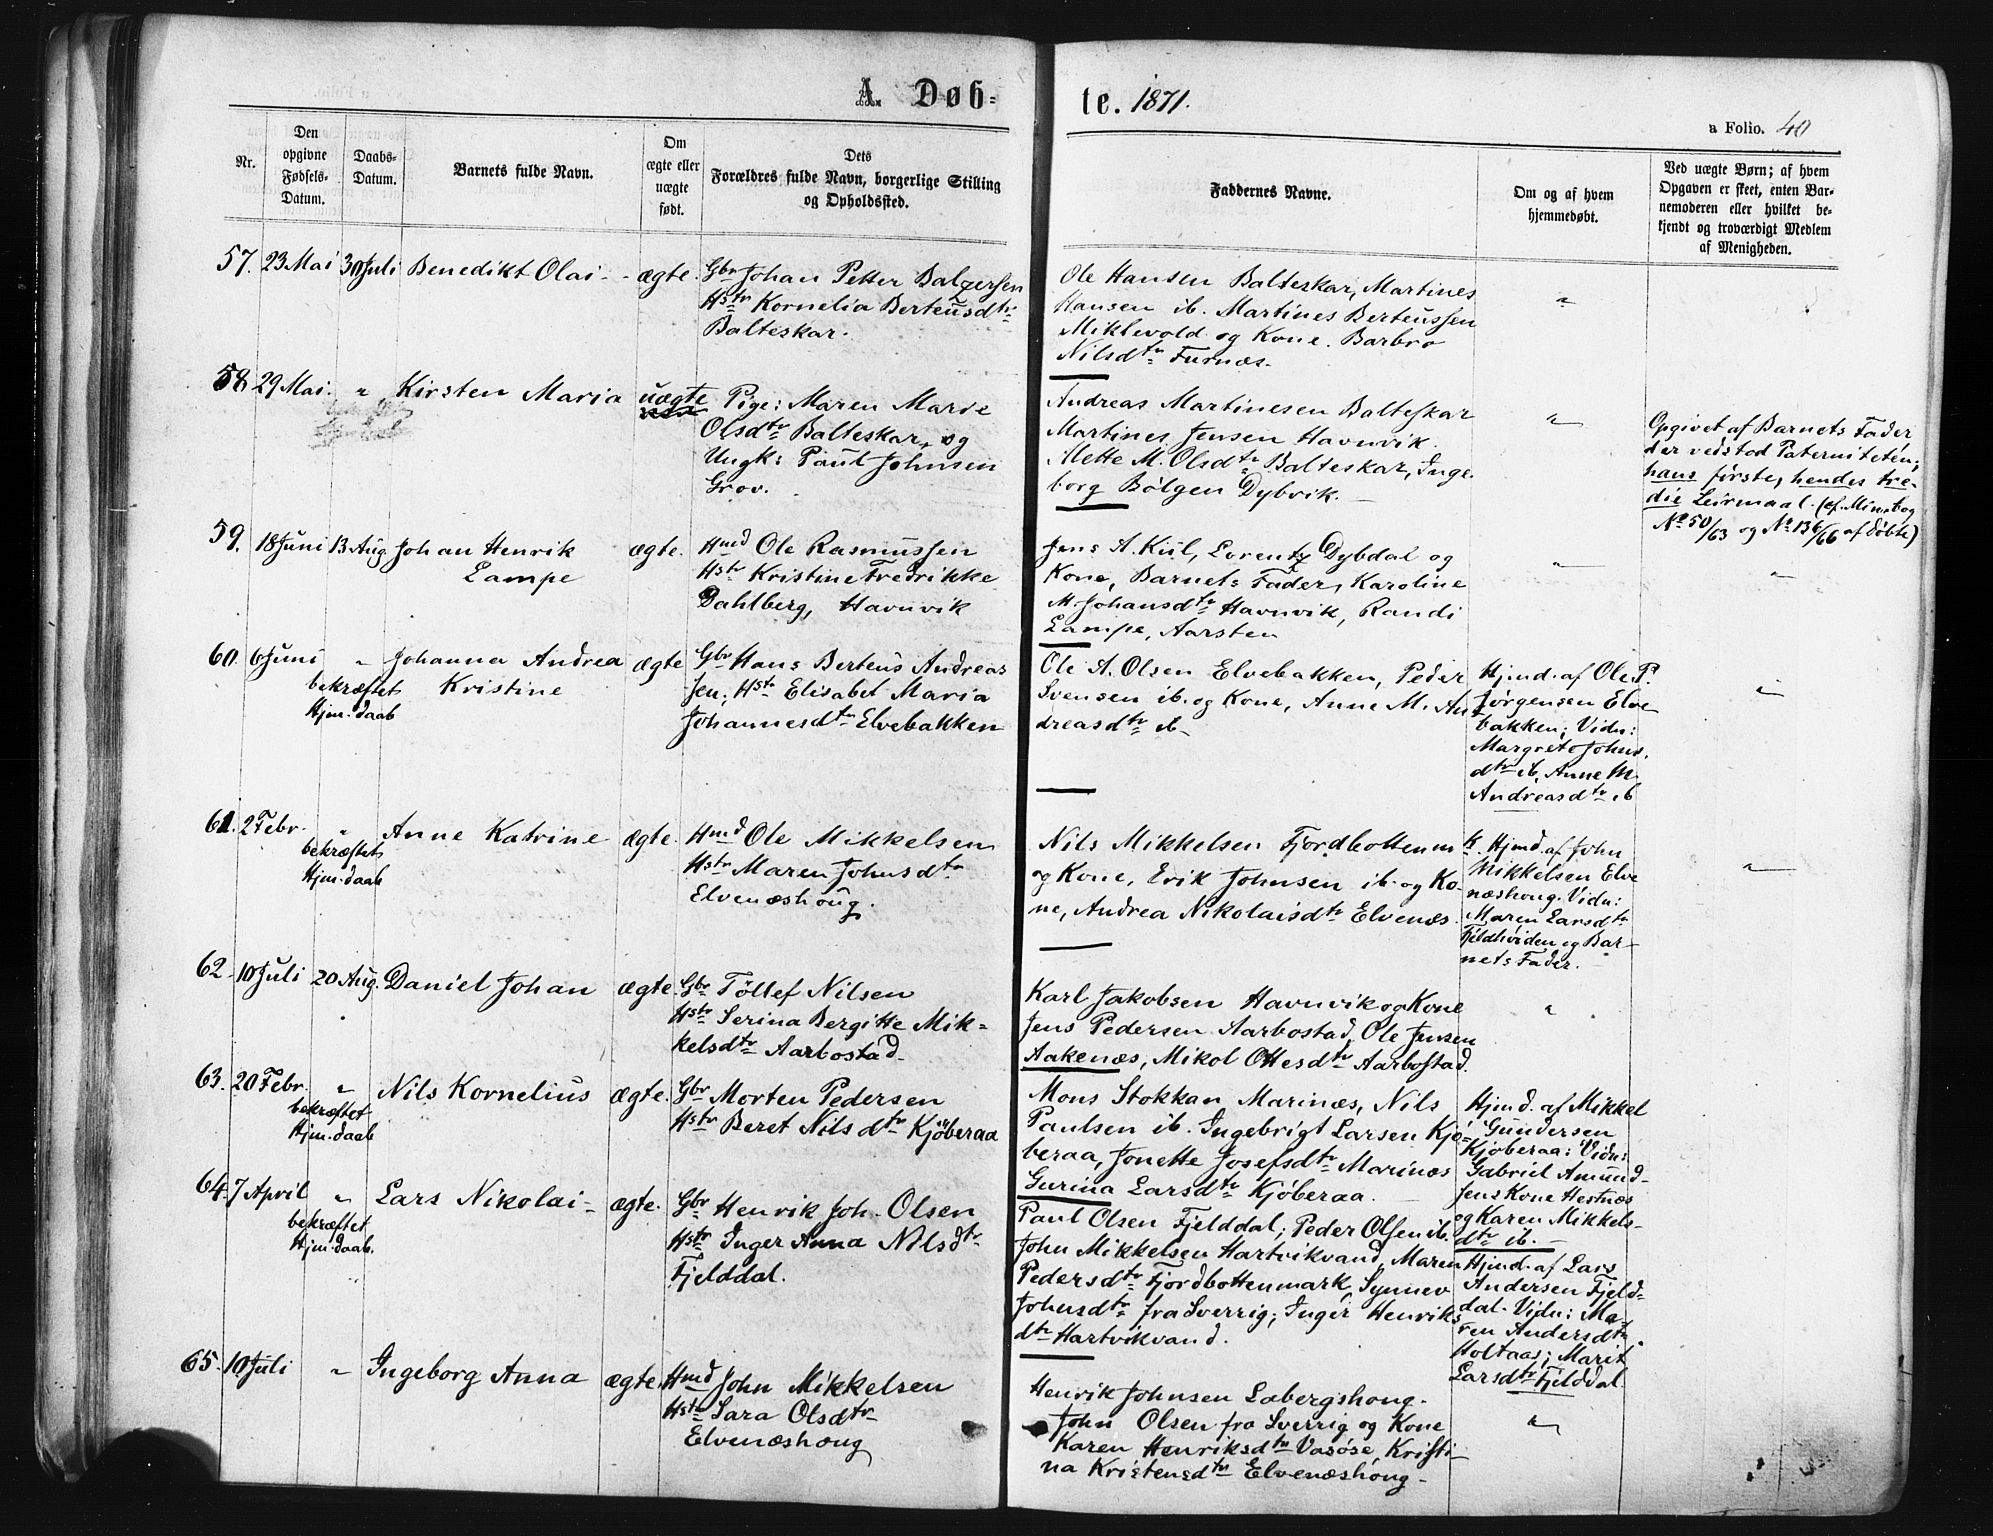 A. Døbte. 1871.
a Folio. 40
Nr.
Den opgivne Fødsels-Datum.
Daabs-Datum.
Barnets fulde Navn.
Om ægte eller uægte født.
Dets Forældres fulde Navn, borgerlige Stilling og Opholdssted.
Faddernes Navne.
Om og af hvem hjemmedøbt.
Ved uægte Børn; af hvem Opgaven er skeet, enten Barnemoderen eller hvilket bekjendt og troværdigt Medlem af Menigheden.
57. 23 Mai 30 Juli Benedikt Olai - ægte.
Gbr Johan Petter Balzersen
Hstr Kornelia Berteusdtr
Balteskar.
Ole Hansen Balteskar, Martines
Hansen ib. Martines Berteussen
Miklevold og Kone. Barbro
Nilsdtr Furnæs.
"
58. 29 Mai. " Kirsten Maria uægte
Pige: Maren Marie
Olsdtr Balteskar, og
Ungk: Paul Johnsen
Grov.
Andreas Martinesen Balteskar
Martines Jensen Havnvik.
Mette M. Olsdtr Balteskar, Inge
borg Bölgen Dybvik. -
"
Opgivet af Barnets Fader
der vedstod Paterniteten;
hans første, hendes tre-
die Leirmaal. (cf. Min. bog
No 50/63 og No 136/66 af døbte)
59. 18 Juni 13 Aug. Johan Henrik
Lampe
ægte.
Hmd Ole Rasmussen
Hstr Kristine Fredrikke
Dahlberg, Havnvik
Jens A. Kiil, Lorentz Dybdal og
Kone, Barnets Fader, Karoline
M. Johansdtr Havnvik, Randi
Lampe, Aarsten
"
"
60. 6 Juni " Johanna Andrea ægte
bekræftet Kristine
Hjm. daab
Gbr Hans Berteus Andreas
sen; Hstr Elisabet Maria
Johannesdtr Elvebakken
Ole A. Olsen Elvebakken, Peder
Svensen ib. og Kone, Anne M. An
dreasdtr ib -
Hjmd. af Ole P.
Jørgensen Elve
bakken; Vidn:
Margrete Johns.
dtr ib, Anne M.
Andreasdtr ib
"
61. 2 Febr. " Anne Katrine ægte.
bekræftet
Hjm. daab
Hmd Ole Mikkelsen
Hstr Maren Johnsdtr
Elvenæshoug.
Nils Mikkelsen Fjordbottenm
og Kone, Erik Johnsen ib. og Ko-
ne, Andrea Nikolaisdtr Elvenæs.
k. Hjmd. af John
Mikkelsen Elve
næshoug. Vidn:
Maren Larsdtr
Fjeldhviden og Bar-
nets Fader. -
"
62. 10 Juli 20 Aug. Daniel Johan ægte.
Gbr Töllef Nilsen
Hstr Serina Bergitte Mik-
kelsdtr Aarbostad.
Karl Jakobsen Havnvik og Kone
Jens Pedersen Aarbostad, Ole Jensen
Aakenæs, Mikol Ottesdtr Aarbostad.
"
63. 20 Febr. " Nils Kornelius ægte.
bekræftet
Hjm. daab
Gbr Morten Pedersen
Hstr Beret Nilsdtr Kjöberaa
Mons Stokkan Marinæs, Nils
Paulsen ib. Ingebrigt Larsen Kjö-
beraa, Jonette Josefsdtr Marinæs
Gurina Larsdtr Kjöberaa. -
Hjmd. af Mikkel
Gundersen
Kjöberaa; Vidn:
Gabriel Amund-
sens Kone Hestnæs
og Karen Mikkels-
dtr ib. -
64. 7 April " Lars Nikolai - ægte.
bekræftet
Hjm. daab.
Gbr Henrik Joh. Olsen
Hstr Inger Anna Nilsdtr
Fjelddal.
Paul Olsen Fjelddal; Peder Olsen ib.
John Mikkelsen Hartvikvand, Maren
Pedersdtr Fjordbottenmark, Synnev
Johnsdtr fra Sverrig; Inger Henriks
dtr Hartvikvand.
Hjmd. af Lars
Andersen Fjeld-
dal. Vidn: Ma-
ren Andersdtr
Holtaas; Marit
Larsdtr Fjelddal.
65. 10 Juli " Ingeborg Anna ægte.
Hmd John Mikkelsen
Hstr Sara Olsdtr
Elvenæshoug
Henrik Johnsen Labergshoug.
John Olsen fra Sverrig og Kone
Karen Henriksdtr Vasöse, Kristi-
na Kristensdtr Elvenæshoug -
"